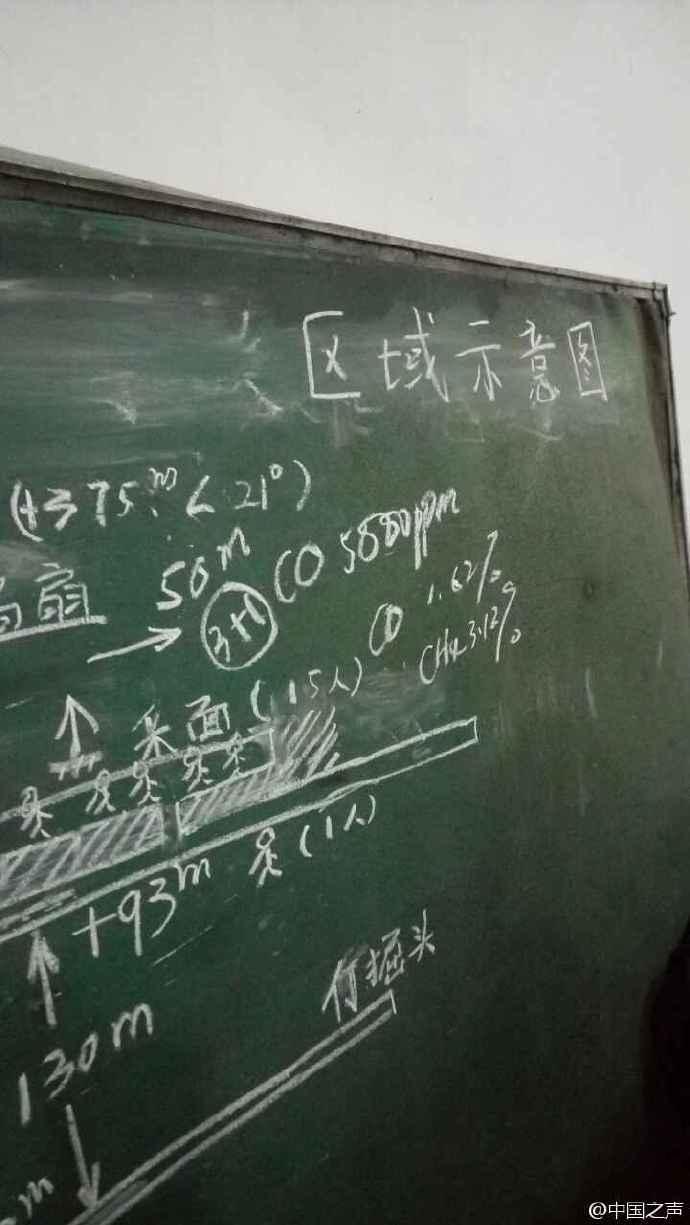 区域示意图
(+375m<21°)
局扇
50m
3+1
CO 5880ppm
CO 1.62%
CH4 3.12%
采面(15人)
+93m
(1人)
付掘头
130m
m
@中国之声